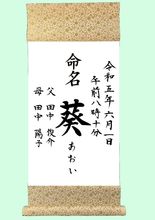 令和五年六月一日
午前八時十分
命名 葵
あおい
父 田中 俊介
母 田中 陽子